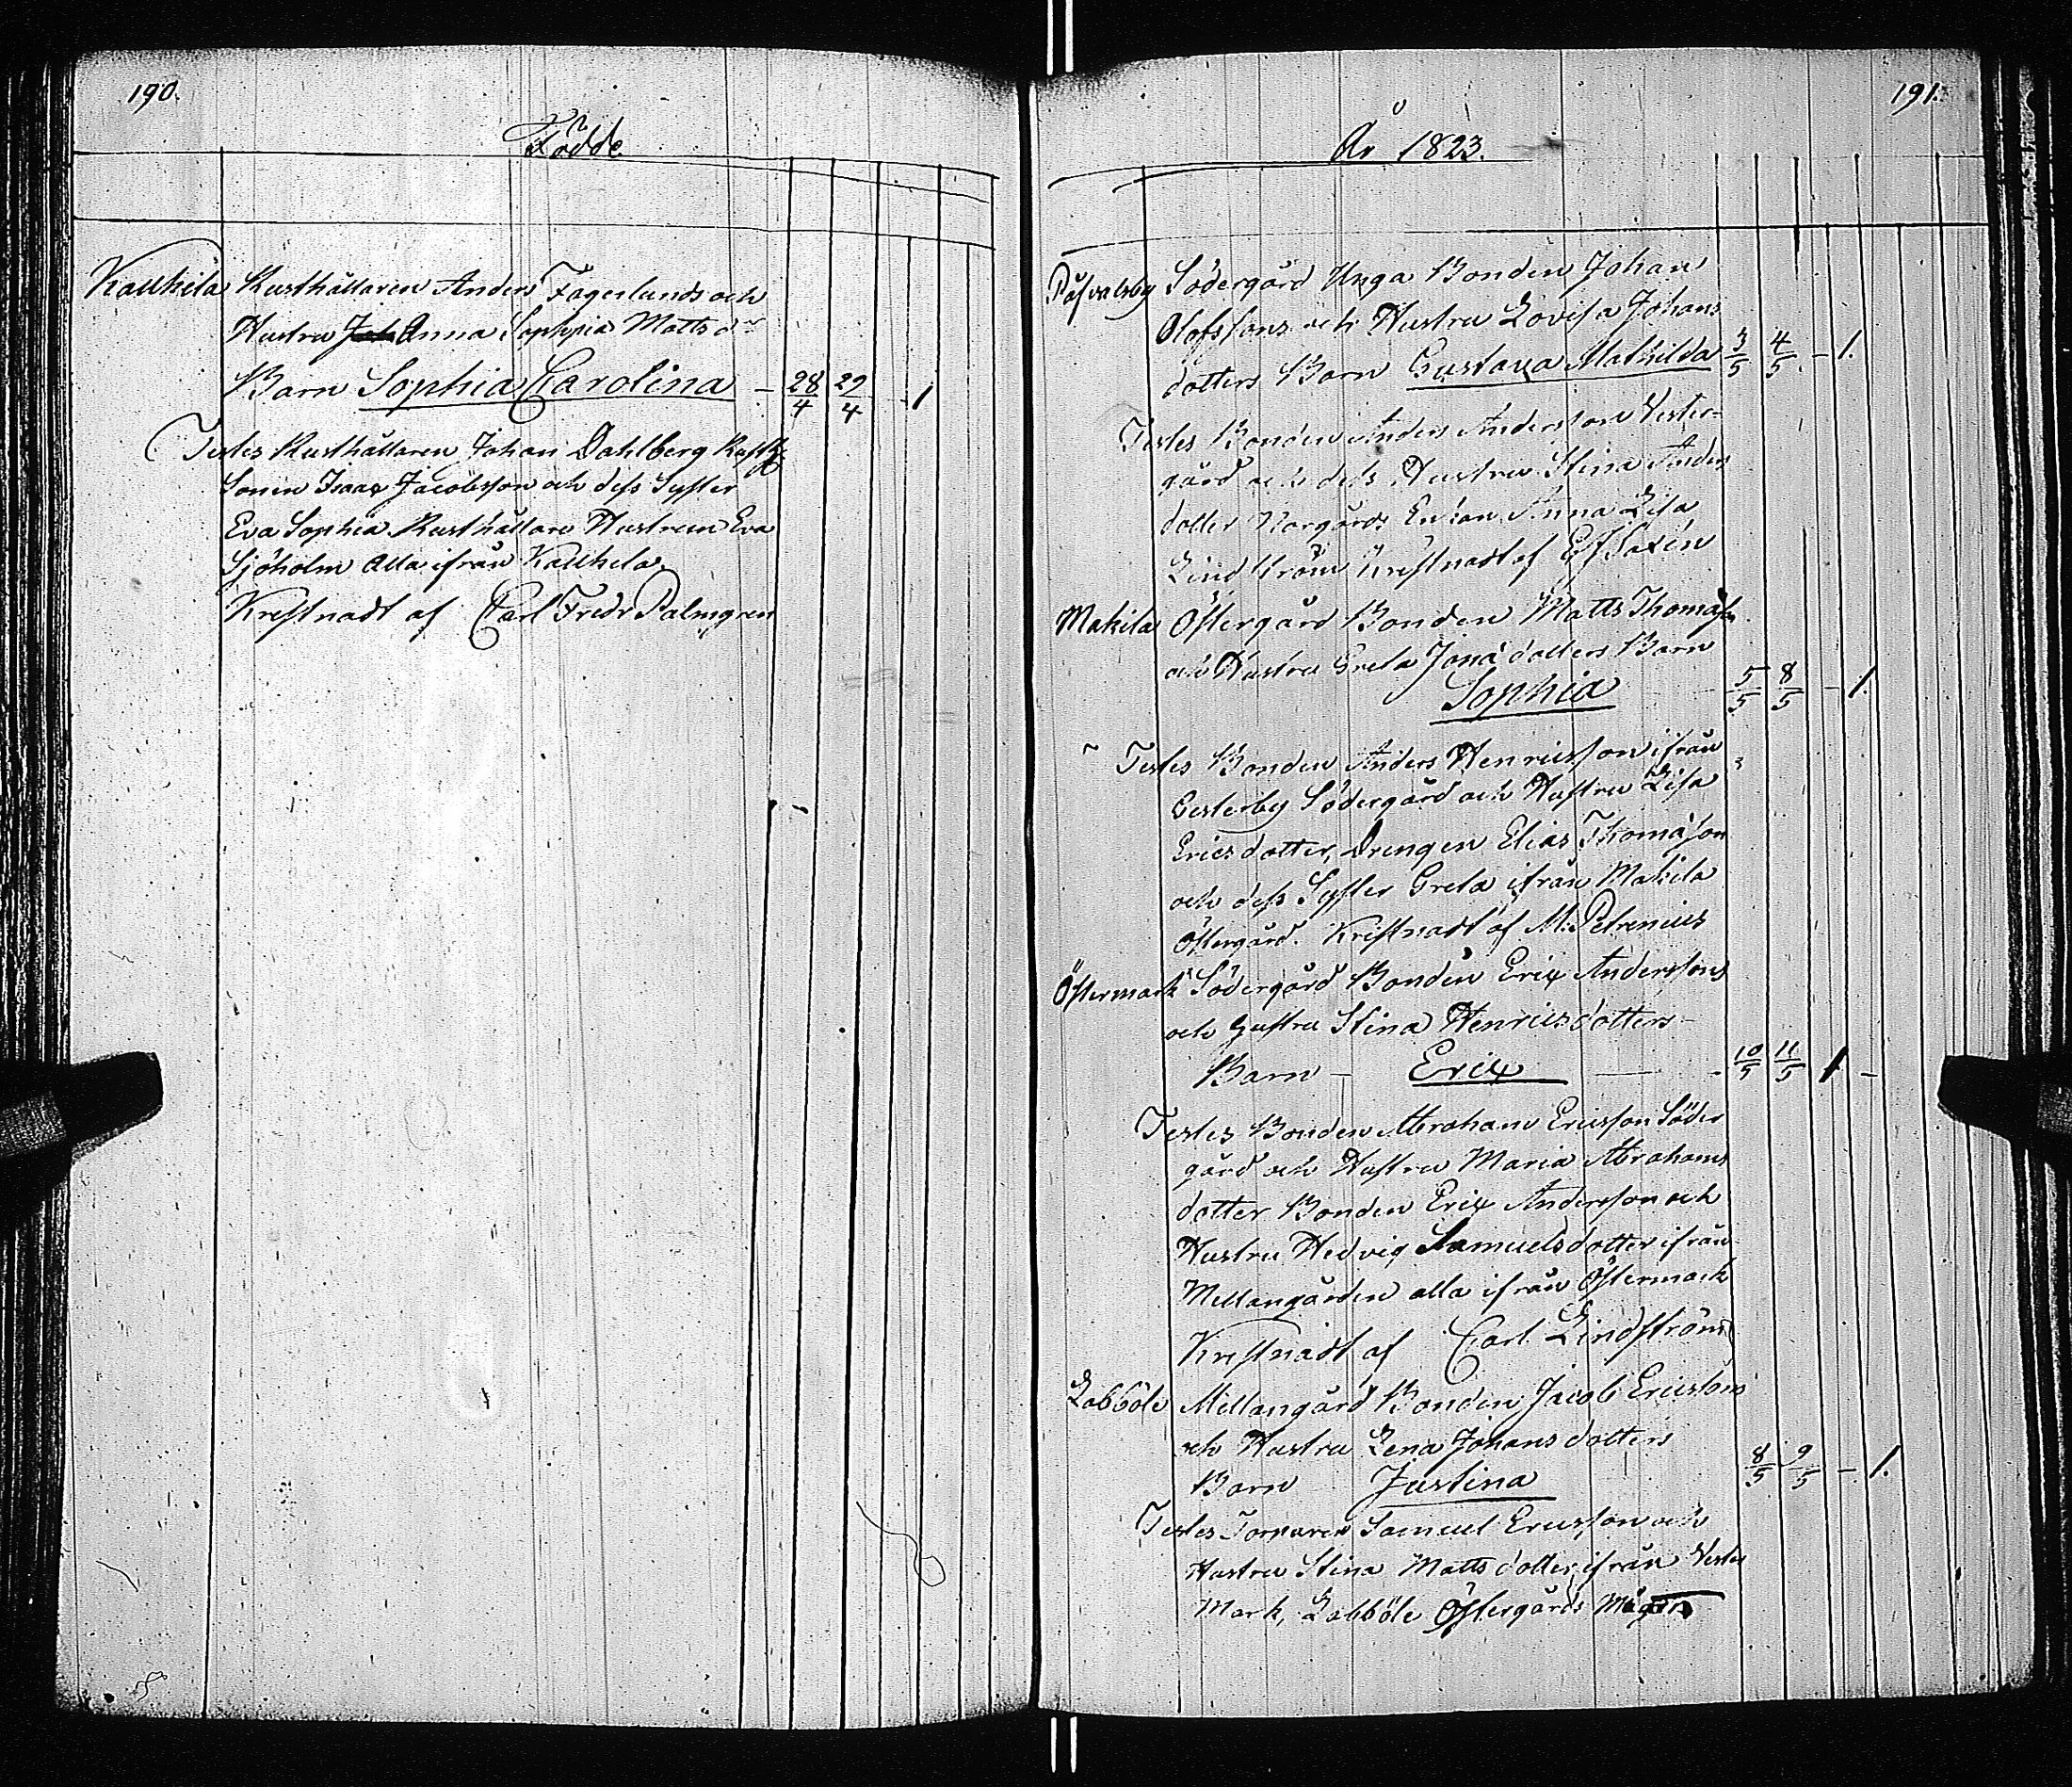 190.
Födde
Kallhila Rusthållaren Anders Fagerlunds och
Hustru Anna Sophia Matts dr
Barn Sophia Carolina - 28/4 29/4 - 1
Testes Rusthållaren Johan Dahlberg Rusth
Sonen Isaac Jacobsson och dess Syster
Eva Sophia Rusthållare Hustrun Eva
Sjöholm Alla ifrån Kallhila.
Kristnadt af Carl Fredr Palmgren
191.
År 1823.
Påfvalsby Södergård Unga Bonden Johan
Olofssons och Hustru Lovisa Johans
dotters Barn Gustava Mathilda 3/5 4/5 - 1.
Testes Bonden Anders Andersson Vester-
gård och dess Hustru Stina Anders
dotter Norgårds Enkan Anna Lisa
Lindström Kristnadt af Saxén
Makila Östergård Bonden Matts Thomasson
och Hustru Greta Jonädotters Barn
Sophia 5/5 8/5 - 1.
Testes Bonden Anders Henricsson ifrån
Vesterby Södergård och Hustru Lisa
Erics dotter, Drengen Elias Thomasson
och dess Syster Greta ifrån Makila
Östergård. Kristnadt af M: Petrenius
Östermark Södergård Bonden Eric Anderssons
och Hustru Stina Henricsdotters
Barn - Eric - 10/5 11/5 1 -
Testes Bonden Abraham Ericsson Söder
gård och Hustru Maria Abrahams
dotter Bonden Eric Andersson och
Hustru Hedvig Samuelsdotter ifrån
Mellangården alla ifrån Östermark
Kristnadt af Carl Lindström
Labböle Mellangård Bonden Jacob Ericssons
och Hustru Lena Johansdotters
Barn Justina 8/5 9/5 - 1.
Testes Torparen Samuel Ericsson och
Hustru Stina Mattsdotter ifrån Vester
Mark, Labböle Östergårds Mågen